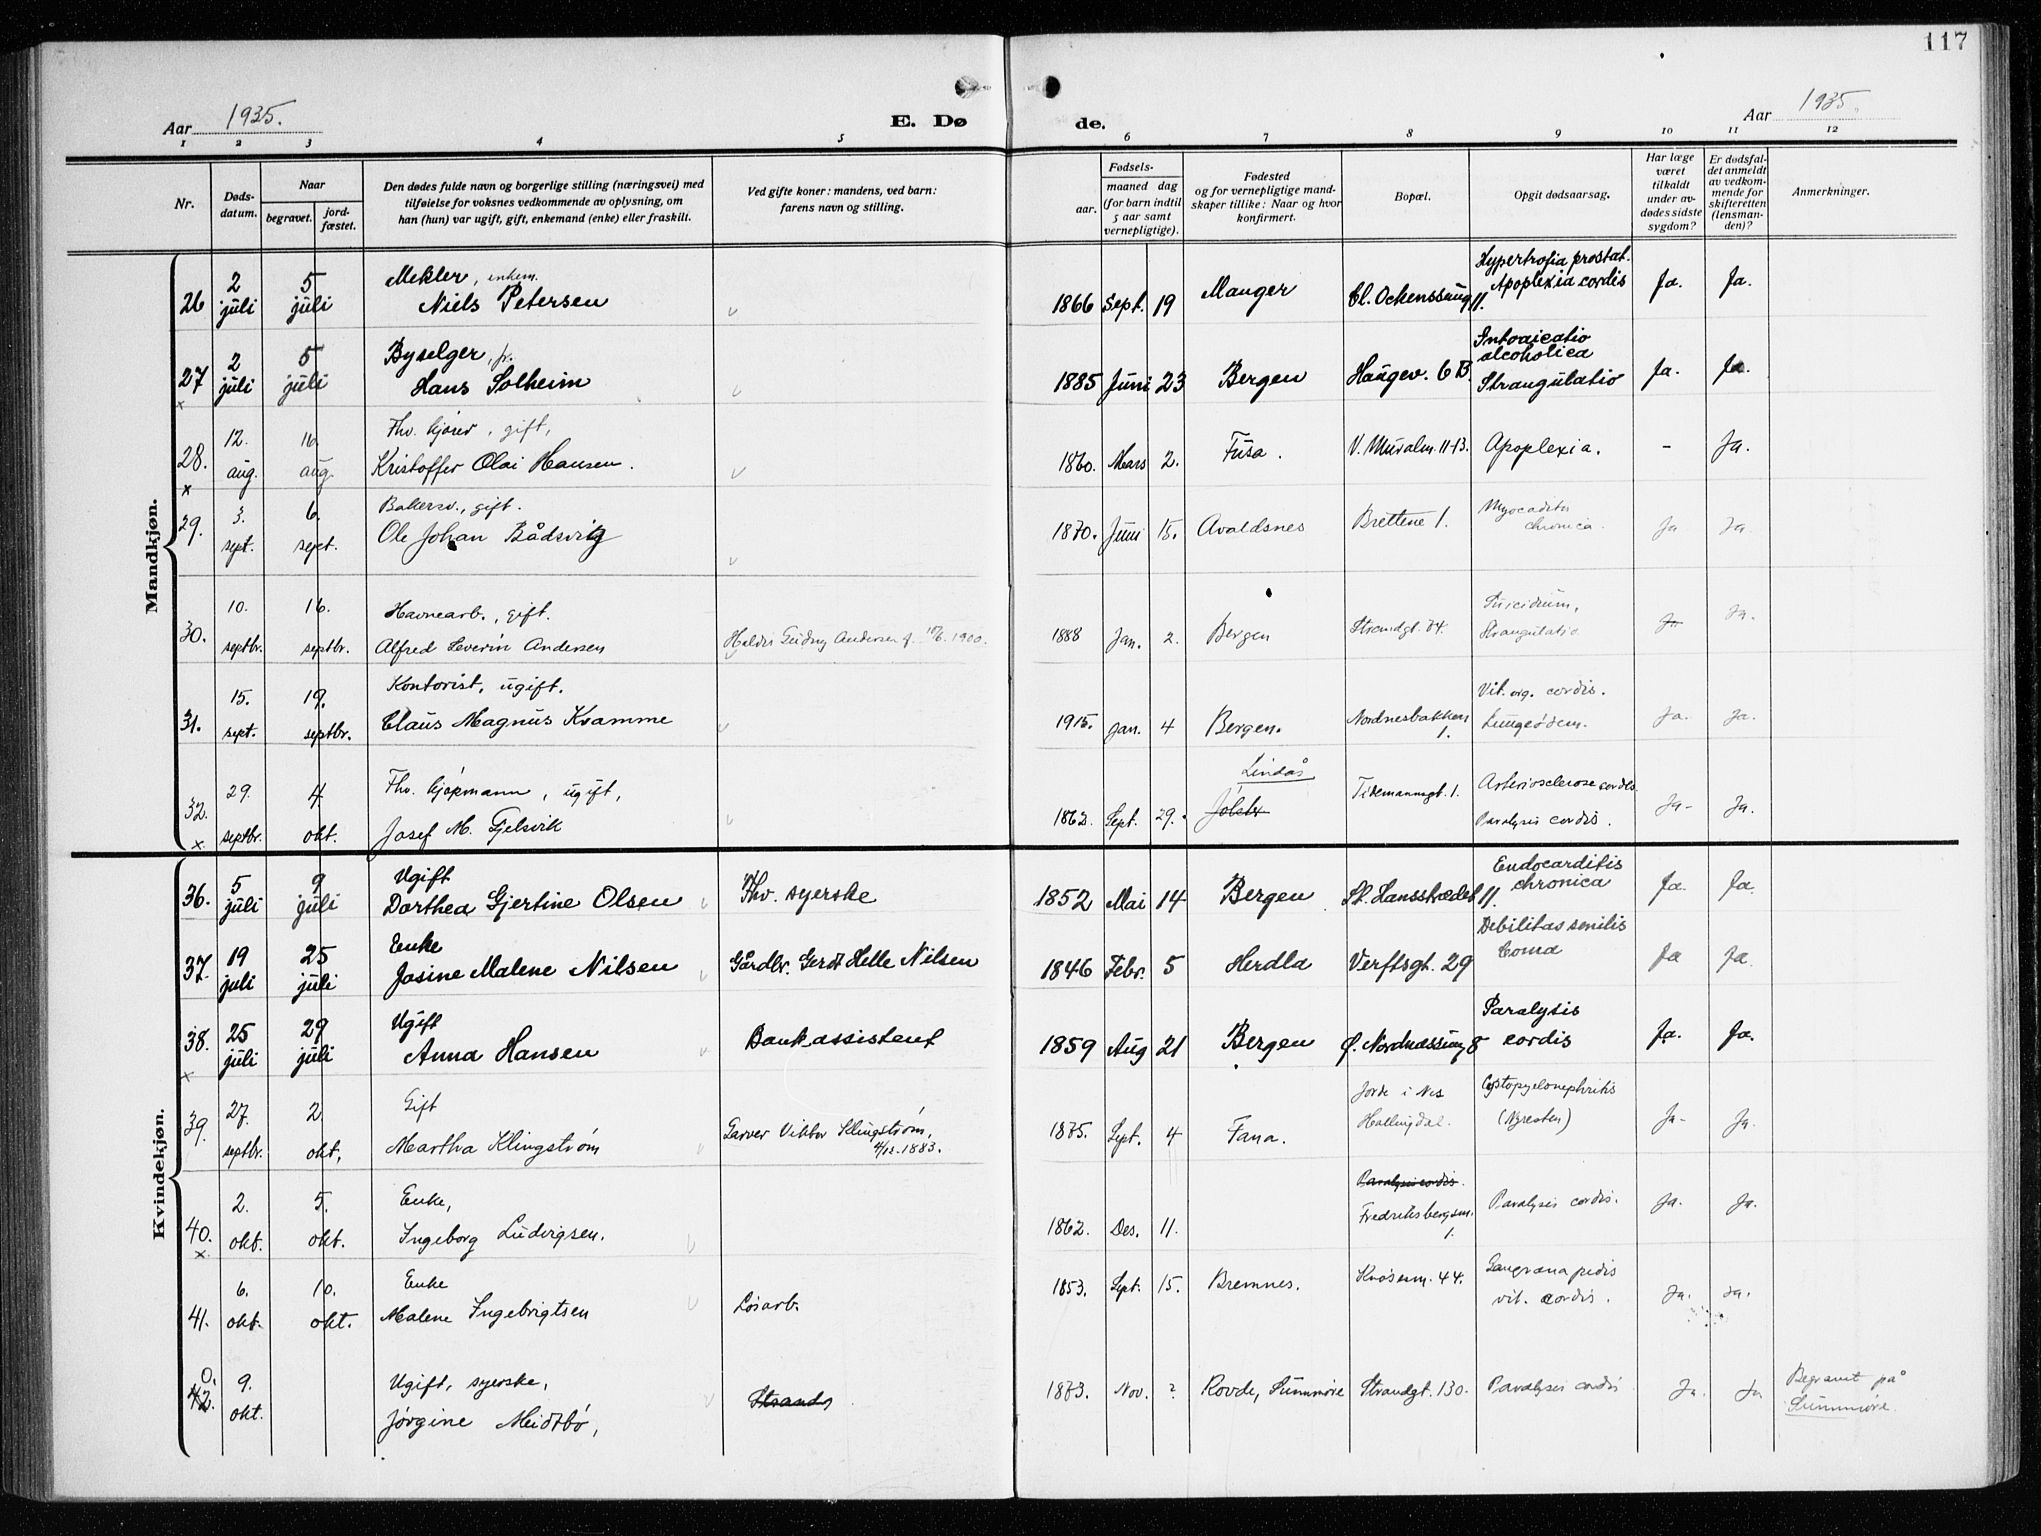 117
Aar 1935.
E. Dø de.
Aar 1935.
1 2 3 4 5 6 7 8 9 10 11 12
Nr.
Døds-
datum.
Naar
begravet.
jord-
fæstet.
Den dødes fulde navn og borgerlige stilling (næringsvei) med
tilføielse for voksnes vedkommende av oplysning, om
han (hun) var ugift, gift, enkemand (enke) eller fraskilt.
Ved gifte koner: mandens, ved barn:
farens navn og stilling.
Fødsels-
aar.
maaned dag
(for barn indtil
5 aar samt
vernepligtige).
Fødested
og for vernepligtige mand-
skaper tillike: Naar og hvor
konfirmert.
Bopæl.
Opgit dødsaarsag.
Har læge
været
tilkaldt
under av-
dødes sidste
sygdom?
Er dødsfal-
det anmeldt
av vedkom-
mende for
skifteretten
(lensman-
den)?
Anmerkninger.
Mandkjøn.
26 2 juli 5 juli Mekler, enkem.
Niels Petersen
1866 Sept. 19 Manger Cl. Ockenssmug 11.
Hypertrofia prostat.
Apoplexia cordis
Ja. Ja.
27 2 juli 5 juli Byselger, fr.
Hans Solheim
1885 Juni 23 Bergen Haugev. 6 B.
Intoxicatio
alcoholica
Strangulatio
Ja. Ja.
28. 12. aug. 16. aug. Fhv. kjører, gift,
Kristoffer Olai Hansen.
1860. Mars 2. Fusa. V. Muralm. 11-13. Apoplexia. - Ja.
29. 3. sept. 6. sept. Bakersv., gift.
Ole Johan Bådsvig
1870. Juni 15. Avaldsnes Brettene 1.
Myocadita
chronica.
Ja Ja.
30. 10. septbr. 16. septbr. Havnearb., gift.
Alfred Severin Andersen
Haldis Gudny Andersen f. 1900.
1888 Jan. 2. Bergen Strandgt. 74.
Suicidium,
Strangulatio
Ja Ja.
31. 15. sept. 19. septbr. Kontorist, ugift.
Claus Magnus Kvamme
1915. Jan. 4 Bergen. Nordnesbakken 1.
Vit. org. cordis.
Lungeødem.
Ja. Ja.
32. 29. septbr. 4. okt. Fhv. kjøpmann, ugift,
Josef M. Gjelsvik
1862. Sept. 29. Lindås
Jølster
Tidemannsgt. 1.
Arteriosclerose cordis.
Paralysis cordis.
Ja- Ja.
Kvindekjøn.
36. 5 juli 9 juli Ugift
Dorthea Gjertine Olsen
Fhv. syerske
1852 Mai 14 Bergen St. Hansstrædet 11.
Endocarditis
chronica
Ja. Ja.
37. 19 juli 25 juli Enke
Josine Malene Nilsen
Gårdbr. Gerdt Helle Nilsen
1846 Febr. 5 Herdla Verftsgt. 29
Debilitas senilis
Coma
Ja Ja.
38. 25 juli 29 juli Ugift
Anna Hansen
Bankassistent
1859 Aug 21 Bergen Ø. Nordnæssmug 8
Paralysis
cordis
Ja. Ja.
39. 27. septbr. 2 okt. Gift
Martha Klingstrøm
Garver Viktor Klingstrøm,
4/12. 1883.
1875. Sept. 4 Fana.
Jorde i Nes
Hallingdal.
Cystopyelonephritis
(Nyresten)
Ja- Ja.
40. 2. okt. 5. okt. Enke,
Ingeborg Ludvigsen.
1862. Des. 11.
Paralysis cordis.
Fredriksbergsm. 1.
Paralysis cordis.
Ja. Ja.
41. 6. okt. 10. okt. Enke
Malene Ingebrigtsen
Løsarb.
1853. Sept. 15. Bremnes. Knøsesm. 44.
Gangræna pedis
vit. cordis.
Ja. Ja.
0. 42. 9. okt. Ugift, syerske,
Jørgine Meidtbø,
Strands
1873. Nov. ? Rovde, Sunnmøre Strandgt. 130. Paralysis cordis Ja. Ja
Begravet på
Sunnmøre.